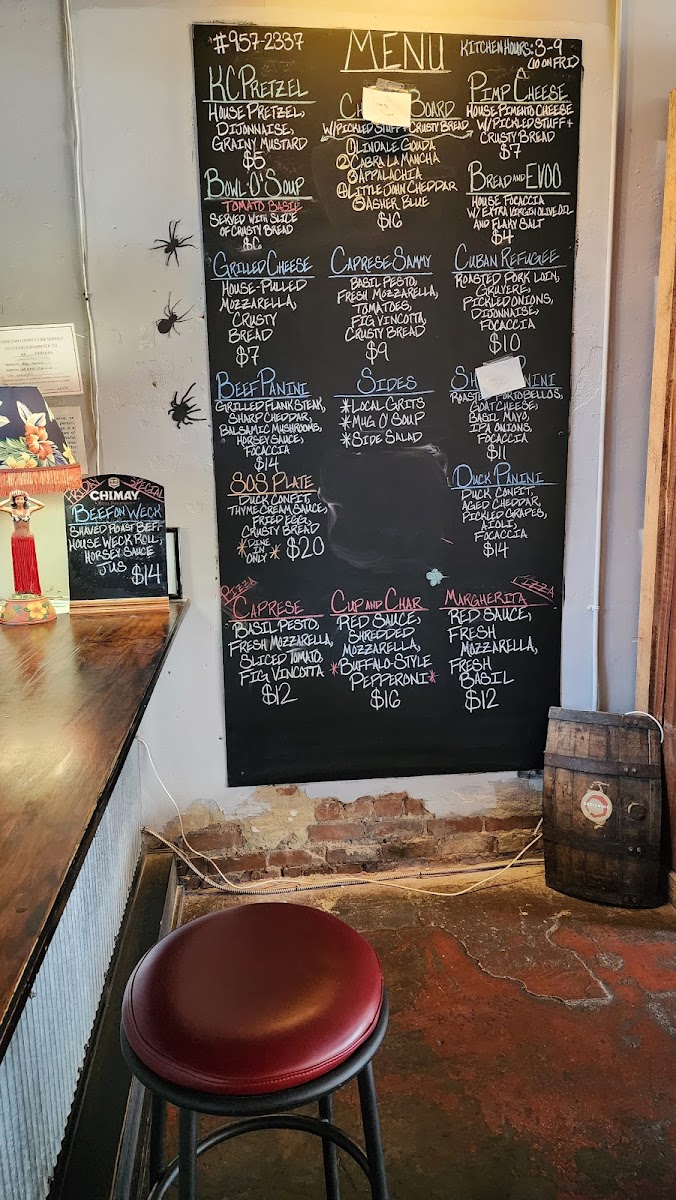 #957-2337
MENU
KITCHEN HOURS: 3-9
(10 ON FRI)
KC PRETZEL
HOUSE PRETZEL,
DIJONNAISE,
GRAINY MUSTARD
$5
BOARD
W/PICKLED STUFF + CRUSTY BREAD
① LINDALE GOUDA
② CABRA LA MANCHA
③ APPALACHIA
④ LITTLE JOHN CHEDDAR
⑤ ASHER BLUE
$16
PIMP CHEESE
HOUSE PIMENTO CHEESE
W/PICKLED STUFF +
CRUSTY BREAD
$7
BOWL O' SOUP
TOMATO BASIL
SERVED WITH SLICE
OF CRUSTY BREAD
BREAD AND EVOO
HOUSE FOCACCIA
W/EXTRA VIRGIN OLIVE OIL
AND FLAKY SALT
$4
GRILLED CHEESE
HOUSE-PULLED
MOZZARELLA,
CRUSTY
BREAD
$7
CAPRESE SAMMY
BASIL PESTO,
FRESH MOZZARELLA,
TOMATOES,
FIG VINCOTTA,
CRUSTY BREAD
$9
CUBAN REFUGEE
ROASTED PORK LOIN,
GRUYERE,
PICKLED ONIONS,
DIJONNAISE,
FOCACCIA
$10
BEEF PANINI
GRILLED FLANK STEAK,
SHARP CHEDDAR,
BALSAMIC MUSHROOMS,
HORSEY SAUCE,
FOCACCIA
$14
SIDES
*LOCAL GRITS
*MUG O' SOUP
*SIDE SALAD
PANINI
ROASTED PORTOBELLO'S,
GOAT CHEESE,
BASIL MAYO,
IPA ONIONS,
FOCACCIA
$11
SOS PLATE
DUCK CONFIT,
THYME CREAM SAUCE,
FRIED EGG,
CRUSTY BREAD
*DINE IN ONLY* $20
DUCK PANINI
DUCK CONFIT,
AGED CHEDDAR,
PICKLED GRAPES,
AIOLI,
FOCACCIA
$14
PIZZA
CAPRESE
BASIL PESTO,
FRESH MOZZARELLA,
SLICED TOMATO,
FIG VINCOTTA
$12
CUP AND CHAR
RED SAUCE,
SHREDDED
MOZZARELLA,
*BUFFALO-STYLE
PEPPERONI*
$16
PIZZA
MARGHERITA
RED SAUCE,
FRESH
MOZZARELLA,
FRESH
BASIL
$12
FRIDAY SPECIAL
CHIMAY
BEEF ON WECK
SHAVED ROAST BEEF,
HOUSE WECK ROLL,
HORSEY SAUCE
JUS $14